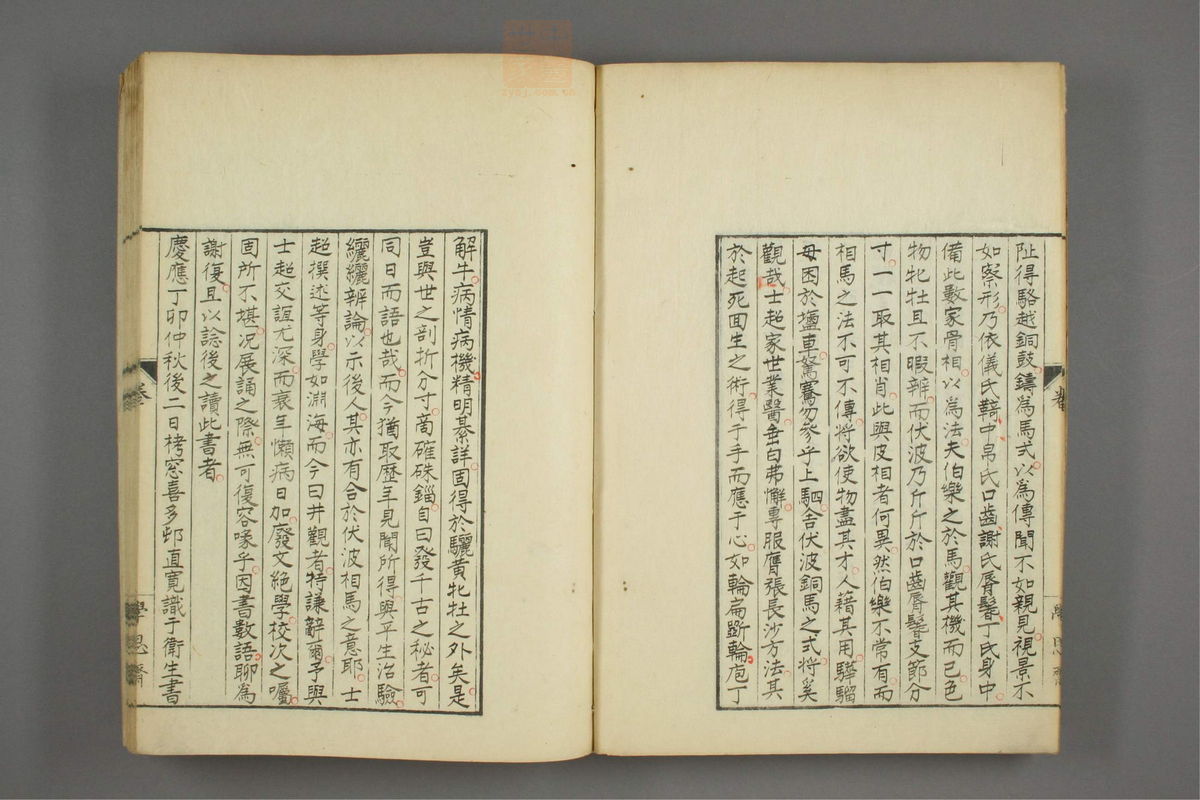 阯得駱越銅鼓鑄為馬式以為傳聞不如親見視景不
如察形乃依儀氏䩭中帛氏口齒謝氏脣鬐丁氏身中
備此數家骨相以為法夫伯樂之於馬觀其機而已色
物牝牡且不暇辨而伏波乃斤斤於口齒脣鬐支節分
寸一一取其相肖此與皮相者何異然伯樂不常有而
相馬之法不可不傳將欲使物盡其才人籍其用驊騮
毋困於壚車駑騫勿參乎上駟舍伏波銅馬之式將奚
觀哉士超家世業醫垂白弗懈專服膺張長沙方法其
於起死回生之術得于手而應于心如輪扁斲輪庖丁
解牛病情病機精明綦詳固得於驪黄牝牡之外矣是
豈與世之剖析分寸啇確硃錙自曰發千古之秘者可
同日而語也哉而今猶取歷年見聞所得與平生治驗
纚纚辨論以示後人其亦有合於伏波相馬之意耶士
超撰述等身學如淵海而今曰井觀者特謙辭爾予與
士超交誼尤深而衰年懶病日加廢文絕學校次之囑
固所不堪况展誦之際無可復容喙乎因書數語聊為
謝復且以諗後之讀此書者
慶應丁卯仲秋後二日栲窓喜多邨直寬識于衛生書
卷
學思齋
zysj.com.cn